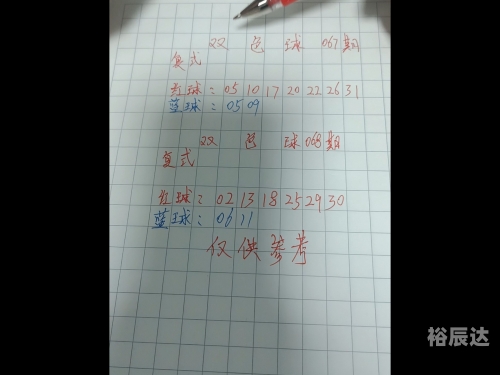 双色球067期
复式
红球：05 10 17 20 22 26 31
蓝球：05 09
双色球068期
复式
红球：02 13 18 25 29 30
蓝球：06 11
仅供参考
裕辰达